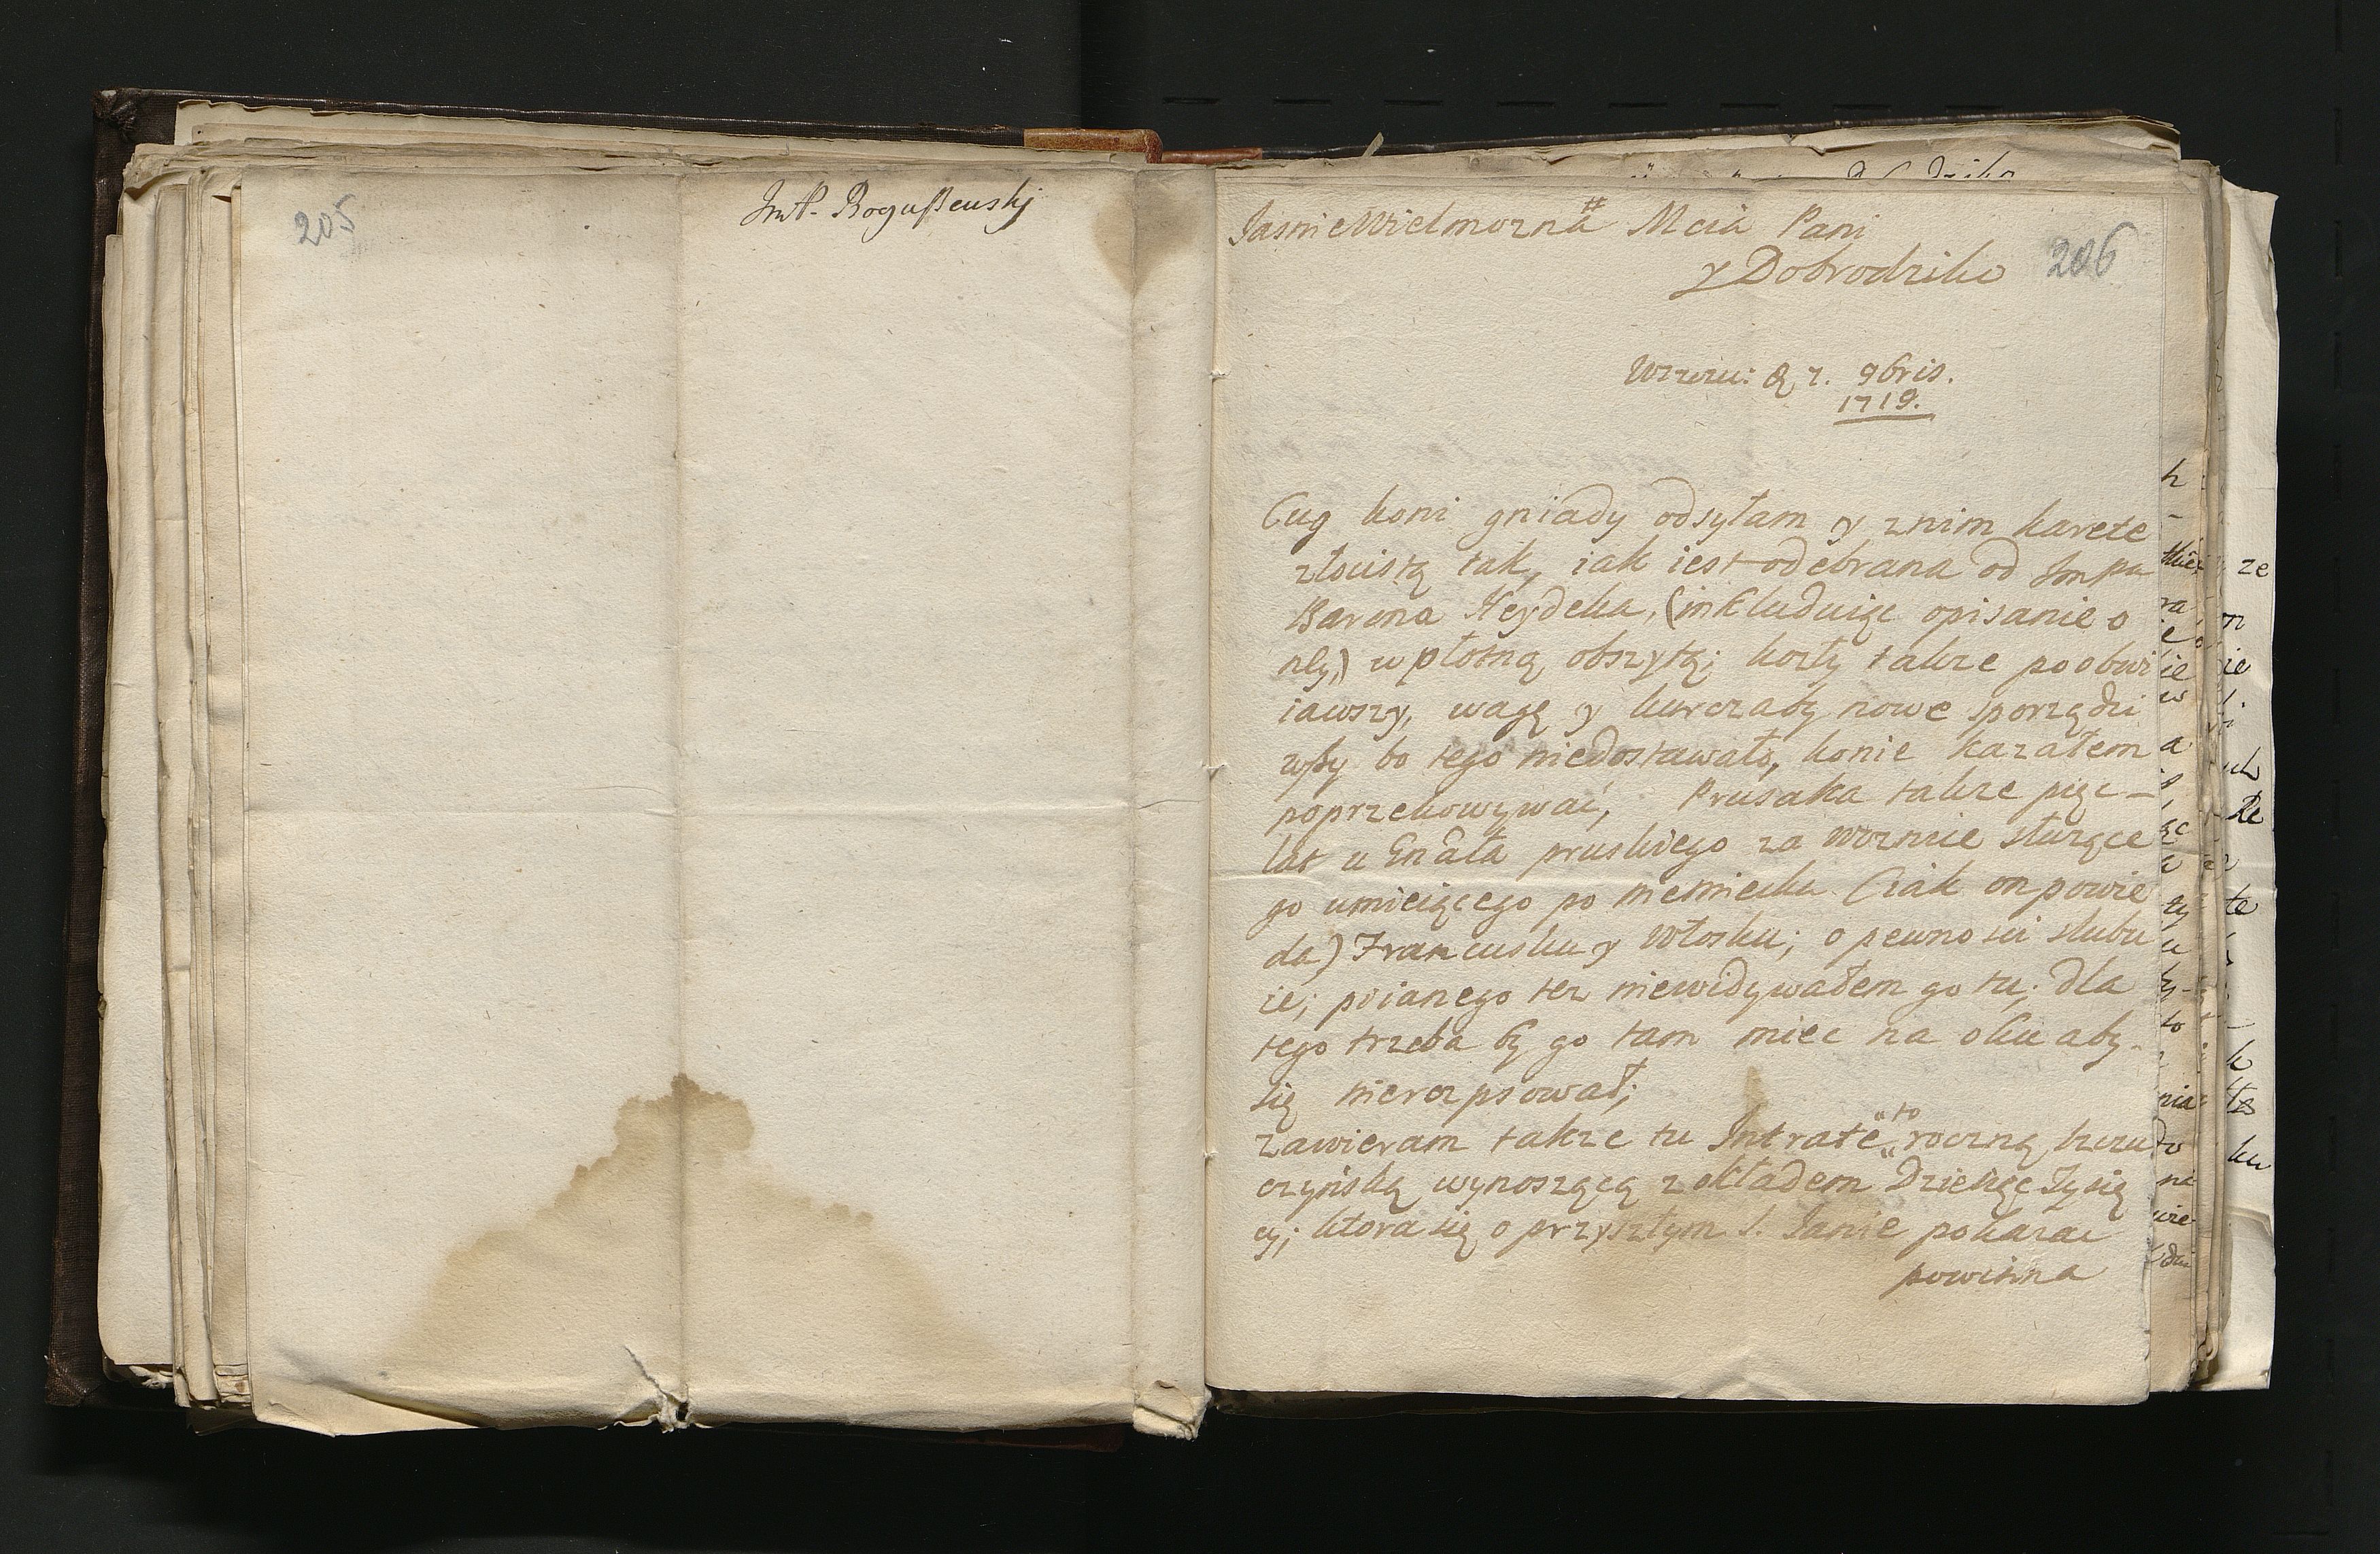 205
ImP. Boguszewskj
206
JasnieWielmozna Mcia Pani
y Dobrodziko
9bris.
1719.
Cug koni gniady odsyłam y znim karete
złocistą tak, iak iest odebrana od Impa
Barona Heydeka, (inkluduiąc opisanie o
niy,) w płotną obszytą; kozły takze poobwi
iawszy, wagę y kurczaby nowe sporządzi
wszy bo tego niedostawało, konie kazałem
poprzekowywać, Prusaka takze pięc _
lat u Gnała pruskiego za woznice służące
go umieiącego po niemiecku (iak on powie
da) Francusku y Włosku; o pewnosci slubu
ie; piianego tez niewidywałem go tu; dla
tego trzeba by go tam miec na oku aby
się nierozpsował;
zawieram takze tu Intrate „to„ roczną
czyńską wynoszącą z okładem Dziesięc Tysię
cy; ktora się o przyszłym S. Janie pokazac
powinna